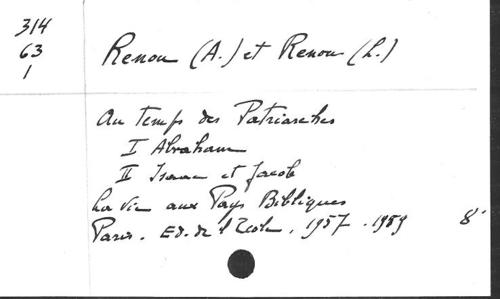 314
63
1
Renou (A.) et Renou (L.)
Au temps des Patriarches
I Abraham
II Isaac et Jacob
La Vie aux Pays Bibliques
Paris. Ed. de l'Ecole. 1957. 1959 8°